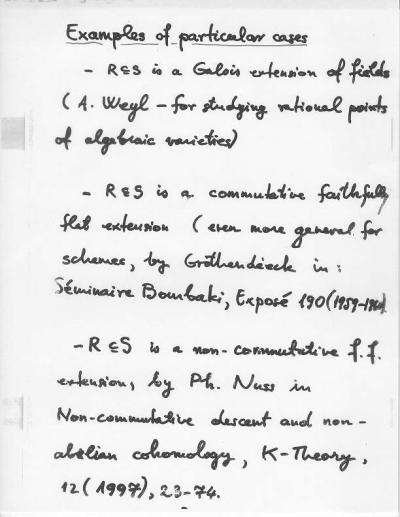 Examples of particular cases
- R⊆S is a Galois extension of fields
(A. Weyl - for studying rational points
of algebraic varieties)
- R⊆S is a commutative faithfully
flat extension (even more general for
schemes, by Grothendieck in:
Séminaire Bourbaki, Exposé 190 (1959-1960)
- R⊆S is a non-commutative f.f.
extension, by Ph. Nuss in
Non-commutative descent and non-
abelian cohomology, K-Theory,
12 (1997), 23-74.